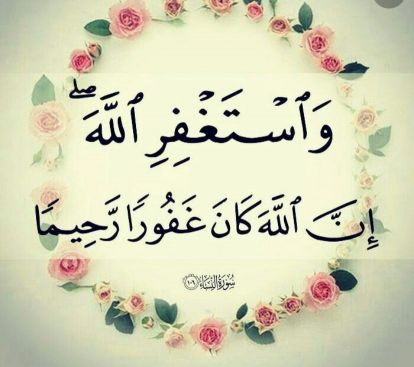 وَٱسۡتَغۡفِرِ ٱللَّهَۖ
إِنَّ ٱللَّهَ كَانَ غَفُورٗا رَّحِيمٗا
سُورَةُ النِّسَاءِ ١٠٦